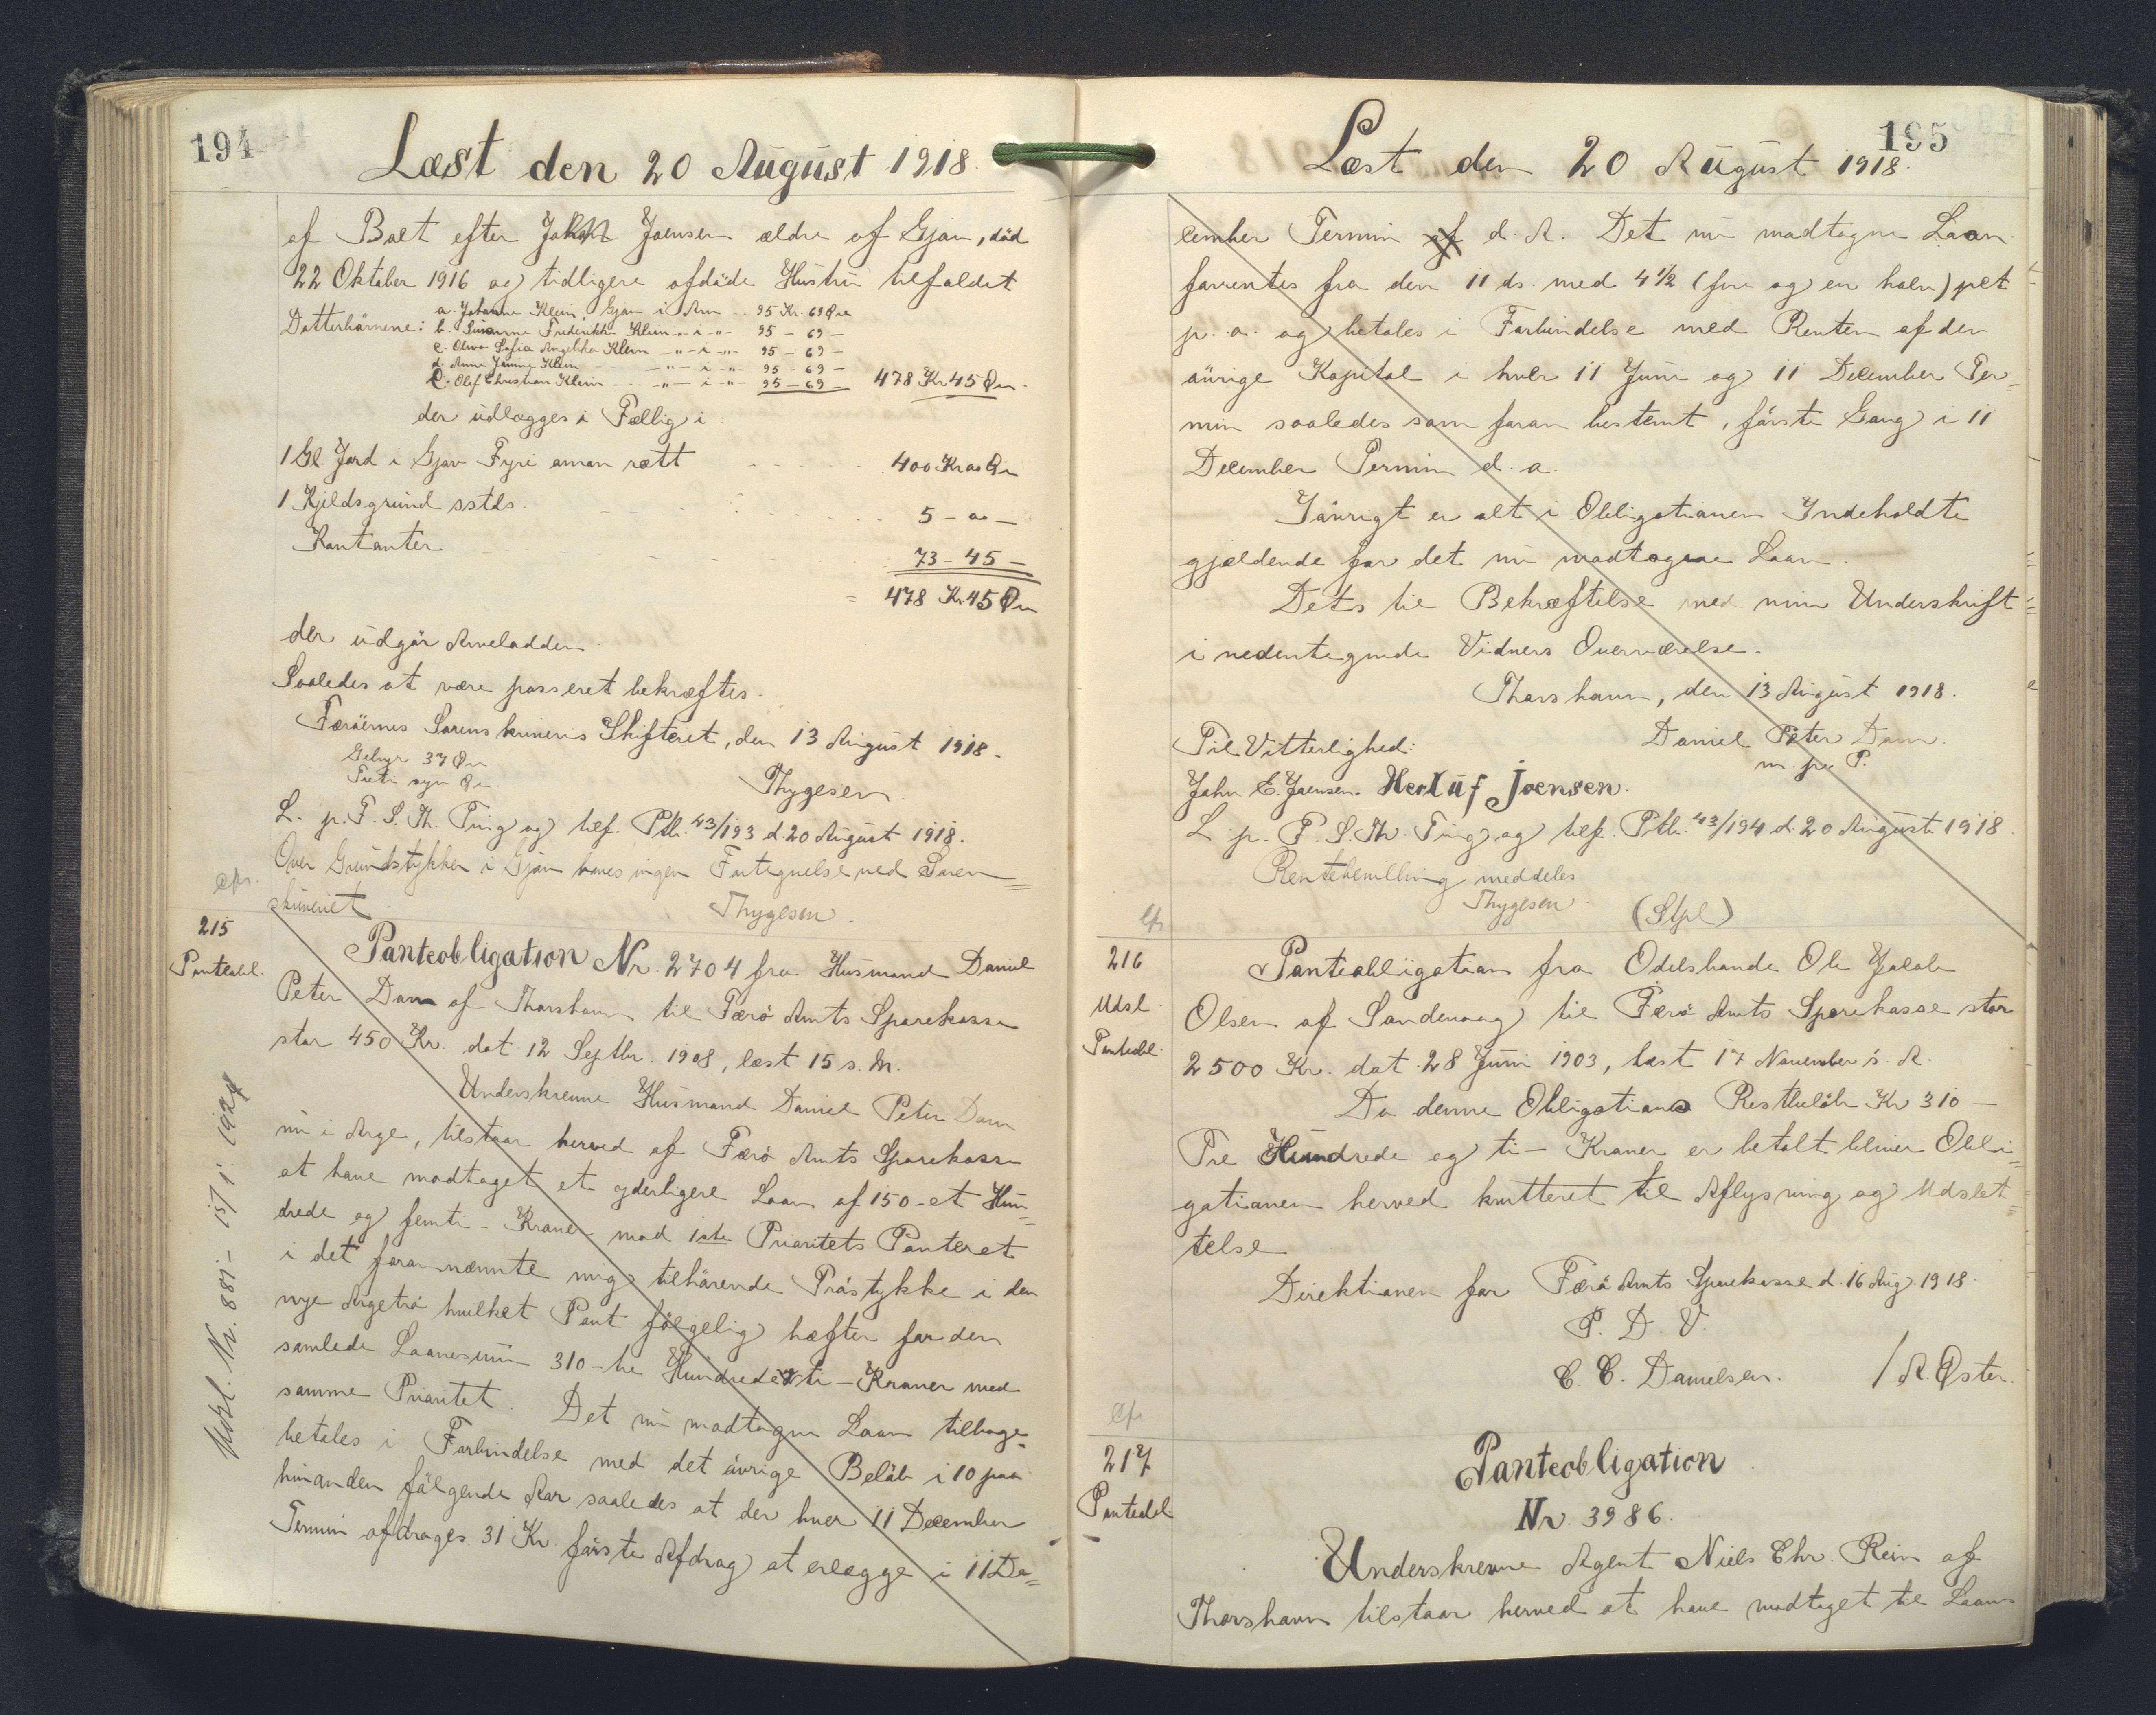 194
Læst den 20 August 1918.
af Boet efter Johan Joensen ældre af Gjov, död
22 Oktober 1916 og tidligere afdöde Hustru tilfaldet
Datterbörnene: a. Johanne Klein, Gjov i Arv .. 95 Kr. 69 Øre
b. Susanne Frederikke Klein - " - i - " - 95 - 69 -
c. Oliva Sofia Angelika Klein - " - i - " - 95 - 69 -
d. Anna Jenine Klein - " - i - " - 95 - 69 -
e. Olef Christian Klein - " - i - " - 95 - 69 - 478 Kr 45 Øre.
der udlægges i Fællig i:
1 Gl. Jord i Gjov Fyri aman rætt 400 Kr oo Øre
1 Kjeldsgrund sstds. 5 - oo -
Kontanter 73 - 45 -
= 478 Kr 45 Øre
der udgör Arvelodden.
Saaledes at være passeret bekræftes.
Færöernes Sorenskriveris Skifteret, den 13 August 1918.
Gebyr 37 Øre
Treti syv Øre.
Thygesen.
L. p. F. S. Th. Ting og tilf. Ptb. 43/193 d. 20 August 1918.
Over Grundstykker i Gjov haves ingen Indtegnelse ved Soren=
skriveriet
Thygesen.
cfr.
215
Panteobl.
Panteobligation Nr. 2704 fra Husmand Daniel
Peter Dam af Thorshavn til Færö Amts Sparekasse
stor 450 Kr. dat 12 Septbr. 1908, læst 15 s. M.
Underskrevne Husmand Daniel Peter Dam
nu i Arge, tilstaar herved af Færö Amts Sparekasse
at have modtaget et yderligere Laan af 150 - et Hun=
drede og femti - Kroner mod 1ste Prioritets Panteret
i det forannævnte mig tilhörende Tröstykke i den
nye Argetrö hvilket Pant fölgelig hæfter for den
samlede Laanesum 310 - tre Hundrede & ti - Kroner med
samme Prioritet. Det nu modtagne Laan tilbage=
betales i Forbindelse med det övrige Belöb i 10 paa
hinanden fölgende Aar saaledes at der hver 11 December
Termin afdrages 31 Kr. förste Afdrag at erlægge i 11 De=
Udsl. Nr. 881 - 15/1. 1924
195
Læst den 20 August 1918.
cember Termin d. A. Det nu modtagne Laan
forrentes fra den 11 ds. med 4 1/2 (fire og en halv) pct
p. a. og betales i Forbindelse med Renten af den
övrige Kapital i hver 11 Juni og 11 December Ter=
min saaledes som foran bestemt, förste Gang i 11
December Termin d. a.
Iövrigt er alt i Obligationen Indeholdte
gjældende for det nu modtagne Laan.
Dets til Bekræftelse med min Underskrift
i nedentegnede Vidners Overværelse.
Thorshavn, den 13 August 1918.
Til Vitterlighed:
Daniel Peter Dam.
m. p. P.
John E. Joensen. Herluf Joensen.
L. p. F. S. Th. Ting og tilf. Ptb. 43/194 d. 20 August 1918.
Rentebevilling meddeles
Thygesen.
(Stpl)
cfr
216
Udsl.
Panteobl.
Panteobligation fra Odelsbonde Ole Jacob
Olsen af Sandevaag til Færö Amts Sparekasse stor
2500 Kr. dat. 28 Juni 1903, læst 17 November s. A.
Da denne Obligations Restbelöb Kr 310 -
Tre Hundrede og ti - Kroner er betalt bliver Obli=
gationen herved kvitteret til Aflysning og Udslet=
telse
Direktionen for Færö Amts Sparekasse d. 16 Aug. 1918.
P. D. V.
C. C. Danielsen. / A. Øster.
cfr
217
Panteobl
Panteobligation
Nr. 3986.
Underskrevne Agent Niels Chr. Rein af
Thorshavn tilstaar herved at have modtaget til Laans